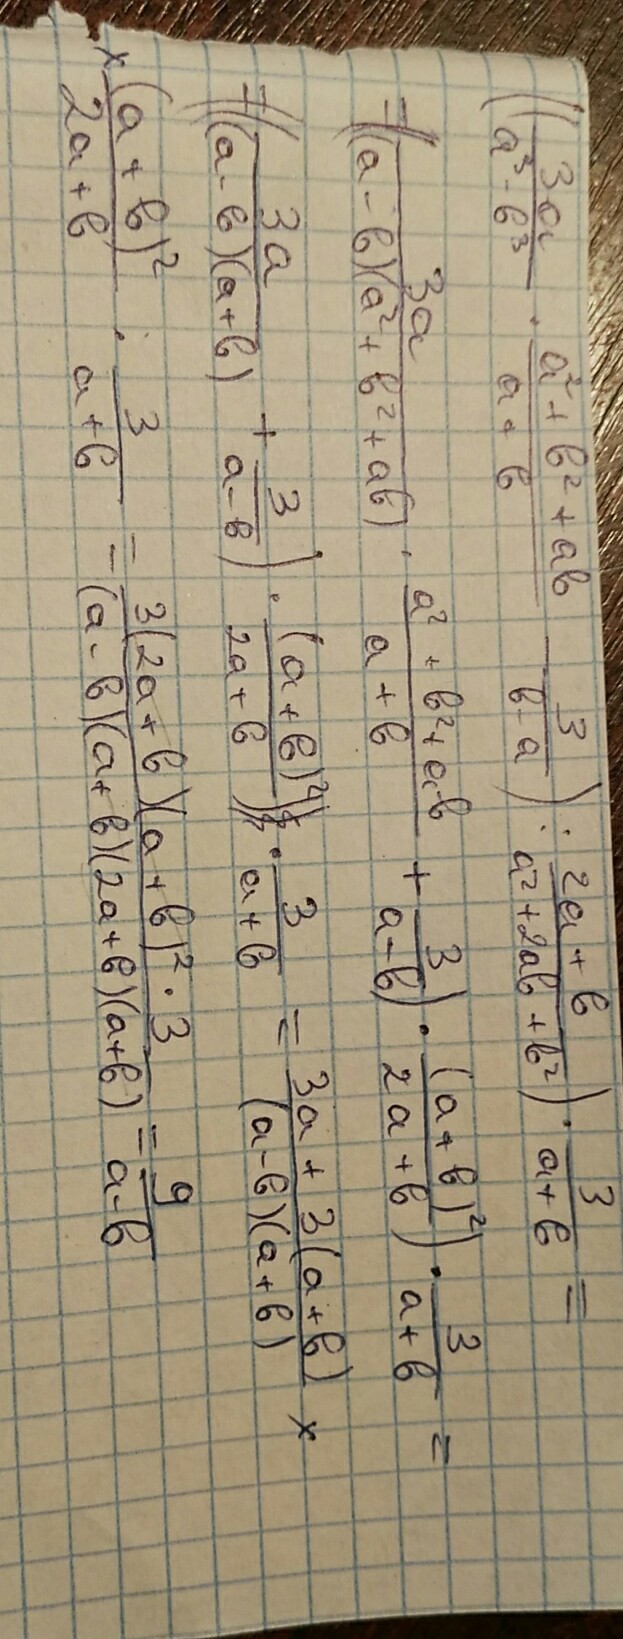 ((3a/(a³-b³) · (a²+b²+ab)/(a+b) - 3/(b-a)) : (2a+b)/(a²+2ab+b²)) · 3/(a+b) =
=((3a/((a-b)(a²+b²+ab)) · (a²+b²+ab)/(a+b) + 3/(a-b)) · (a+b)²/(2a+b)) · 3/(a+b) =
=((3a/((a-b)(a+b)) + 3/(a-b)) · (a+b)²/(2a+b)) · 3/(a+b) = (3a+3(a+b))/((a-b)(a+b)) ×
× (a+b)²/(2a+b) · 3/(a+b) = (3(2a+b)(a+b)²·3)/((a-b)(a+b)(2a+b)(a+b)) = 9/(a-b)